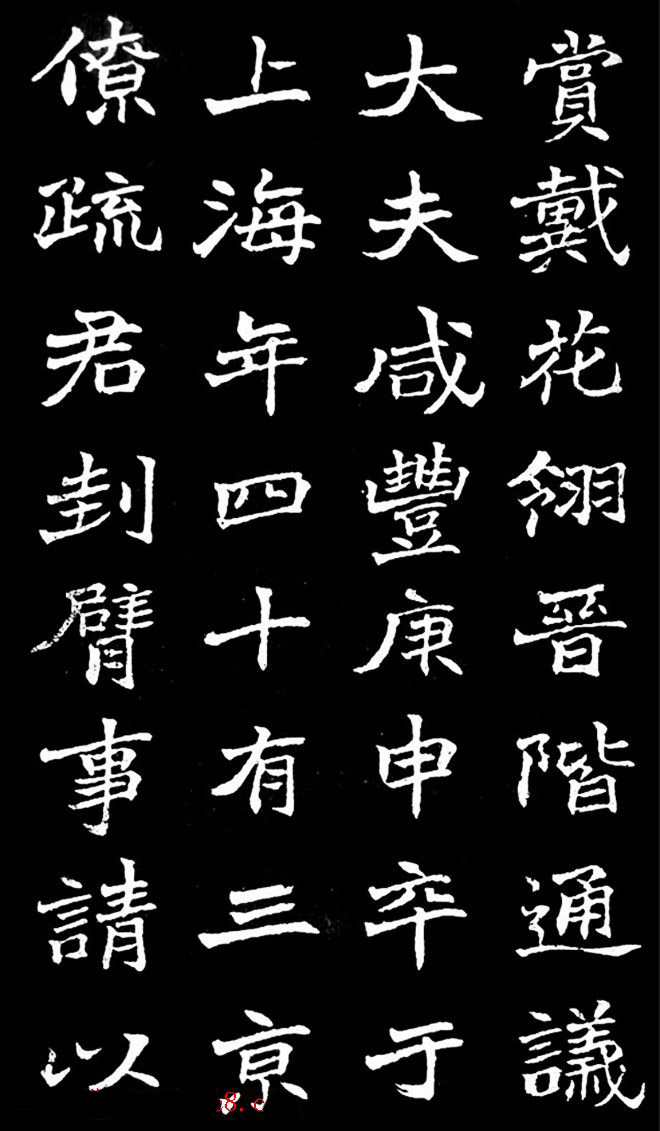 賞戴花翎晉階通議
大夫咸豐庚申卒于
上海年四十有三京
僚疏君刲臂事請以